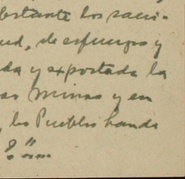 obstante los sacri-
ud, de esfuerzos y
da y exportada la
as Minas y en
, los Pueblos hands
? " ....